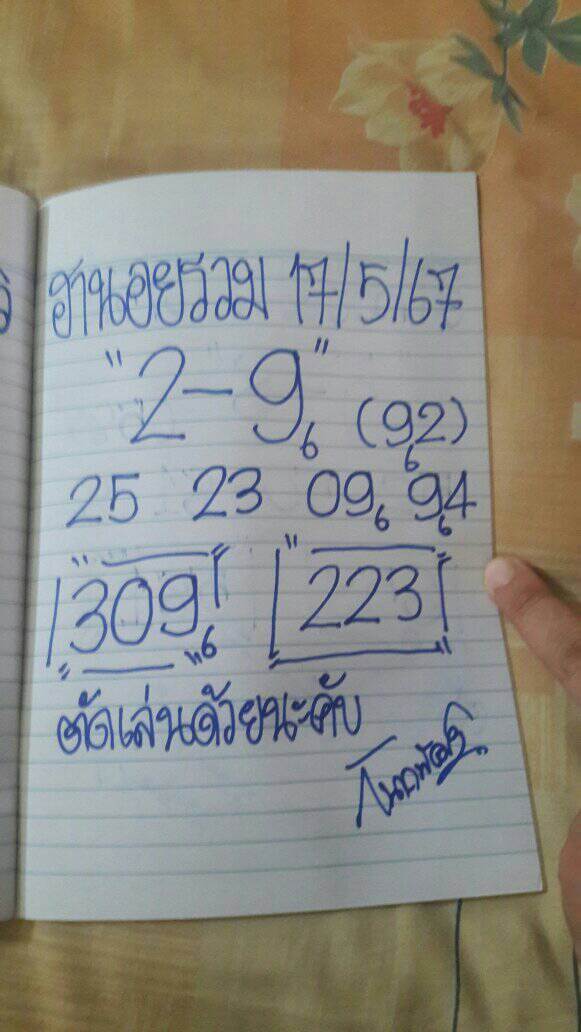 ฮานอยรวม 17/5/67
"2-9" 6 (92) 6
25 23 09 6 94 6
309 6 223
ตัดเล่นด้วยนะคับ